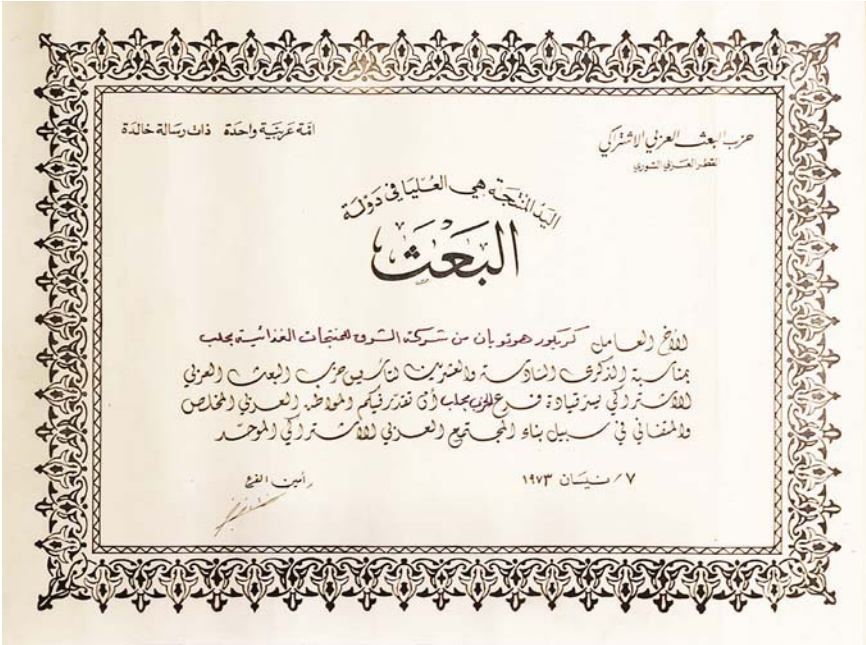 حزب البعث العربي الاشتراكي
القطر العربي السوري
امّة عَربيَّة واحدَة ذات رسَالة خالدَة
اليَدُ المنتجَة هي العُليَا في دَوْلَة
البَعْث
للأخ العامل كريكور هوتويان من شركة الشرق للمنتجات الغذائية بحلب
بمناسبة الذكرى السادسة والعشرين لتأسيس حزب البعث العربي
الاشتراكي يسر قيادة فرع الحزب بحلب أن تقدّر فيكم المواطن العربي المخلص
والمتفاني في سبيل بناء المجتمع العربي الاشتراكي الموحّد
٧/ نيسَان ١٩٧٣
أمين الفرع